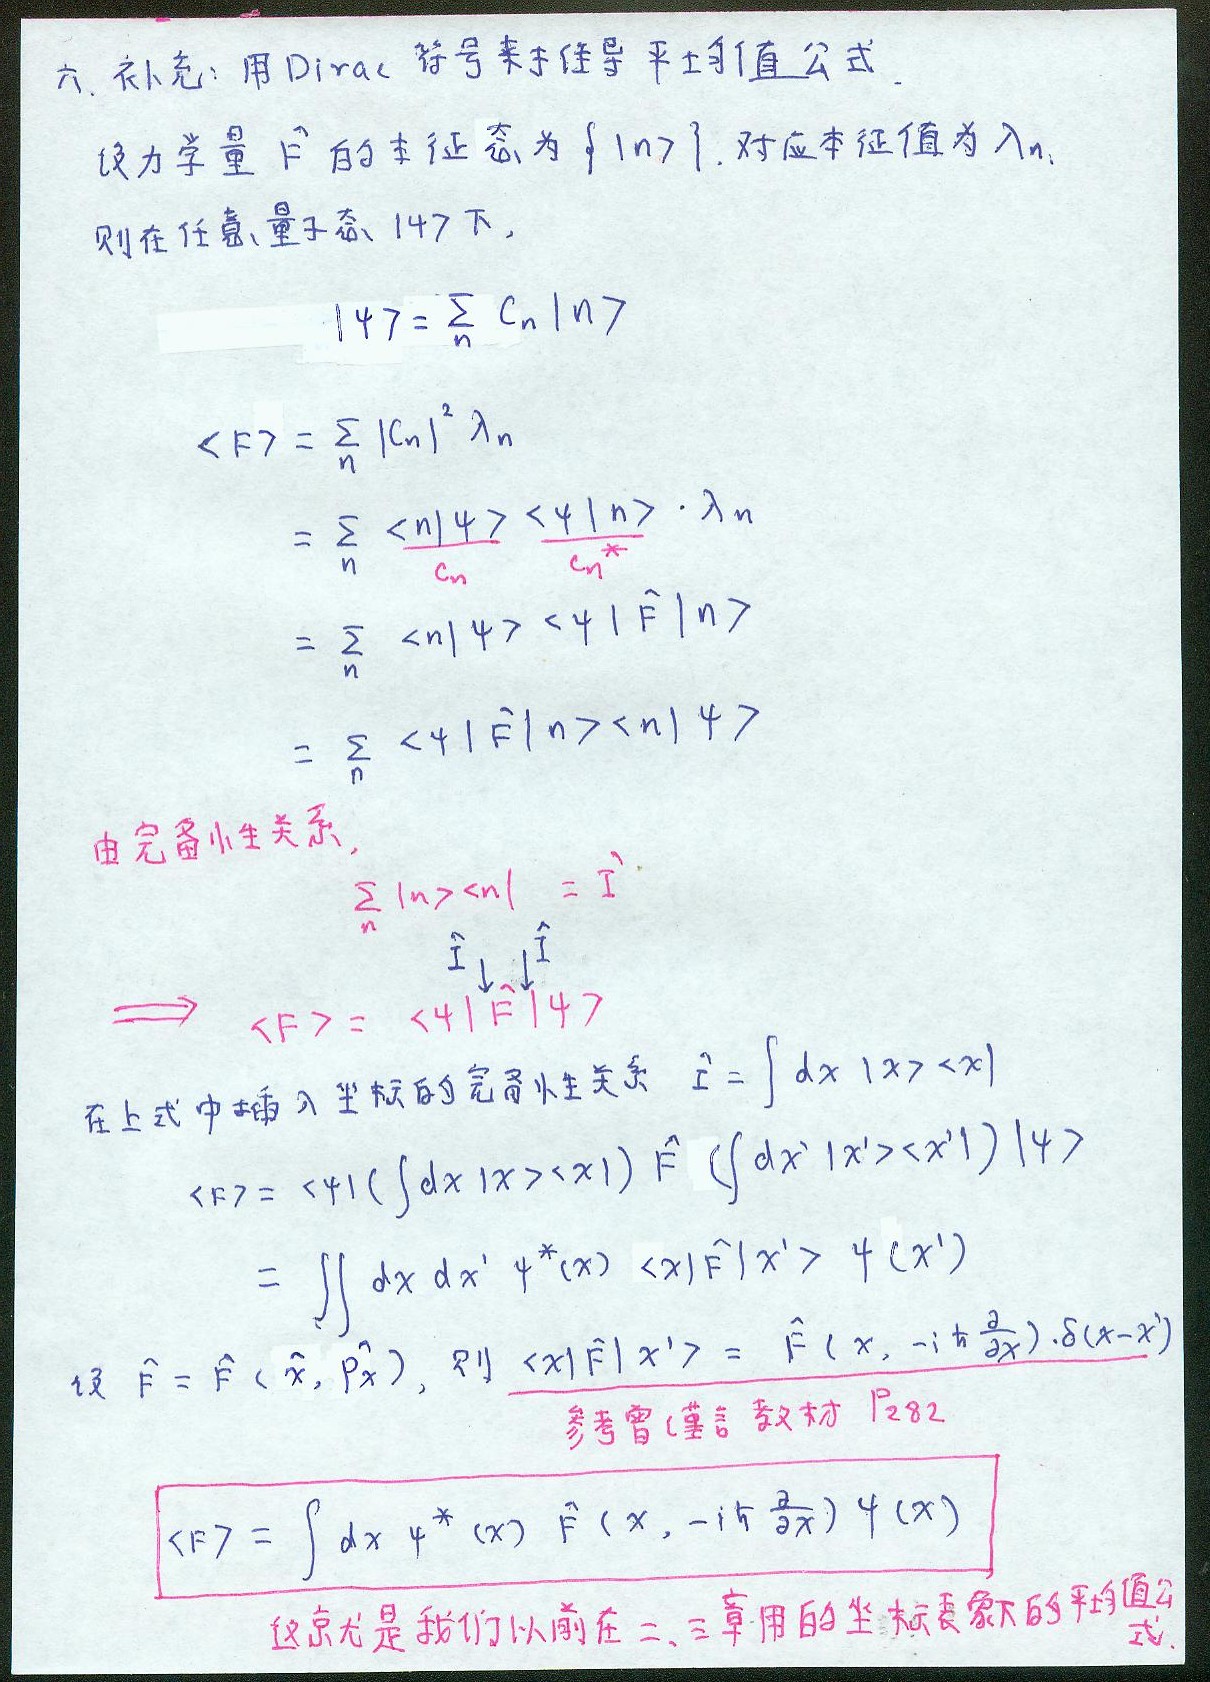 六、补充：用Dirac 符号来推导平均值公式.
设力学量 F̂ 的本征态为 {|n>}. 对应本征值为 λn,
则在任意量子态 |ψ>下,
|ψ> = Σn Cn |n>
<F> = Σn |Cn|² λn
= Σn <n|ψ> <ψ|n> · λn
Cn Cn*
= Σn <n|ψ> <ψ|F̂|n>
= Σn <ψ|F̂|n><n|ψ>
由完备性关系,
Σn |n><n| = Î
Î↓ ↓Î
⟹ <F> = <ψ|F̂|ψ>
在上式中插入坐标的完备性关系 Î = ∫dx |x><x|
<F> = <ψ|(∫dx |x><x|) F̂ (∫dx' |x'><x'|)|ψ>
= ∬ dx dx' ψ*(x) <x|F̂|x'> ψ(x')
设 F̂ = F̂(x̂, p̂x), 则 <x|F̂|x'> = F̂(x, -iħ ∂/∂x)·δ(x-x')
参考曾谨言教材 P282
<F> = ∫dx ψ*(x) F̂(x, -iħ ∂/∂x) ψ(x)
这就是我们以前在二、三章用的坐标表象下的平均值公
式.